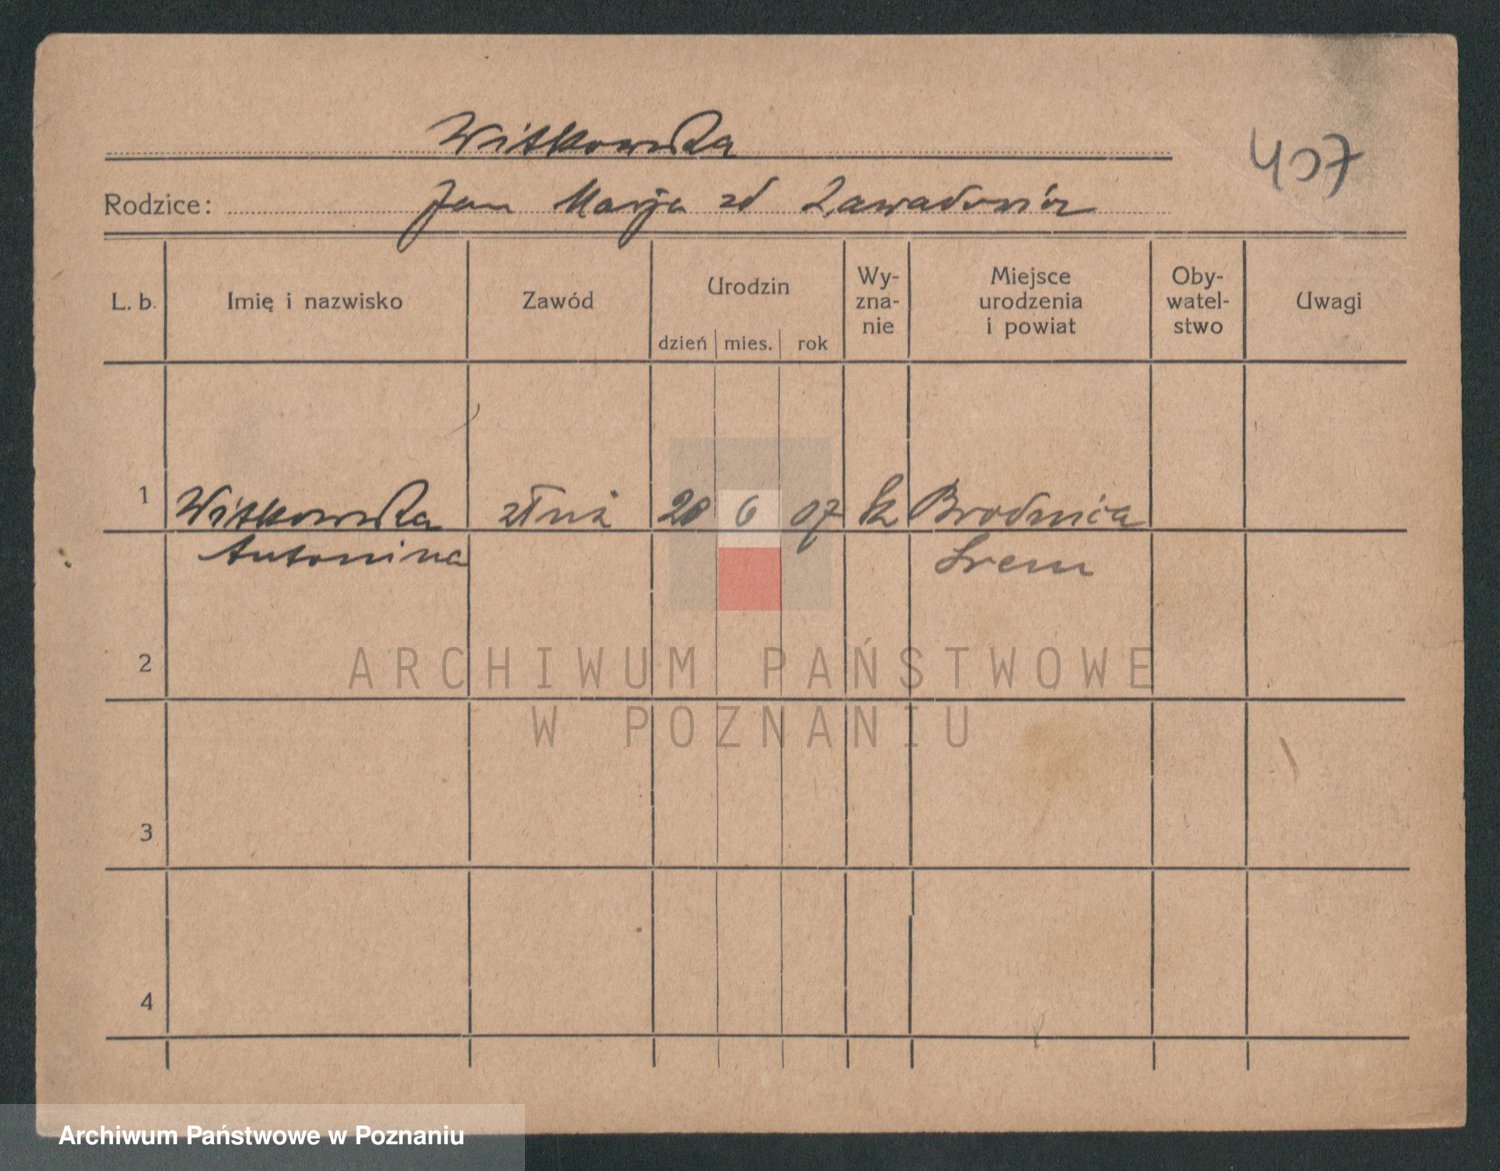 Witkowska
407
Rodzice: Jan Marja zd
L. b.
Imię i nazwisko
Zawód
Urodzin
dzień mies. rok
Wy-
zna-
nie
Miejsce
urodzenia
i powiat
Oby-
watel-
stwo
Uwagi
1 Witkowska 20 6 07 k Brodnica
Antonina Srem
2
3
4
ARCHIWUM PAŃSTWOWE
W POZNANIU
Archiwum Państwowe w Poznaniu